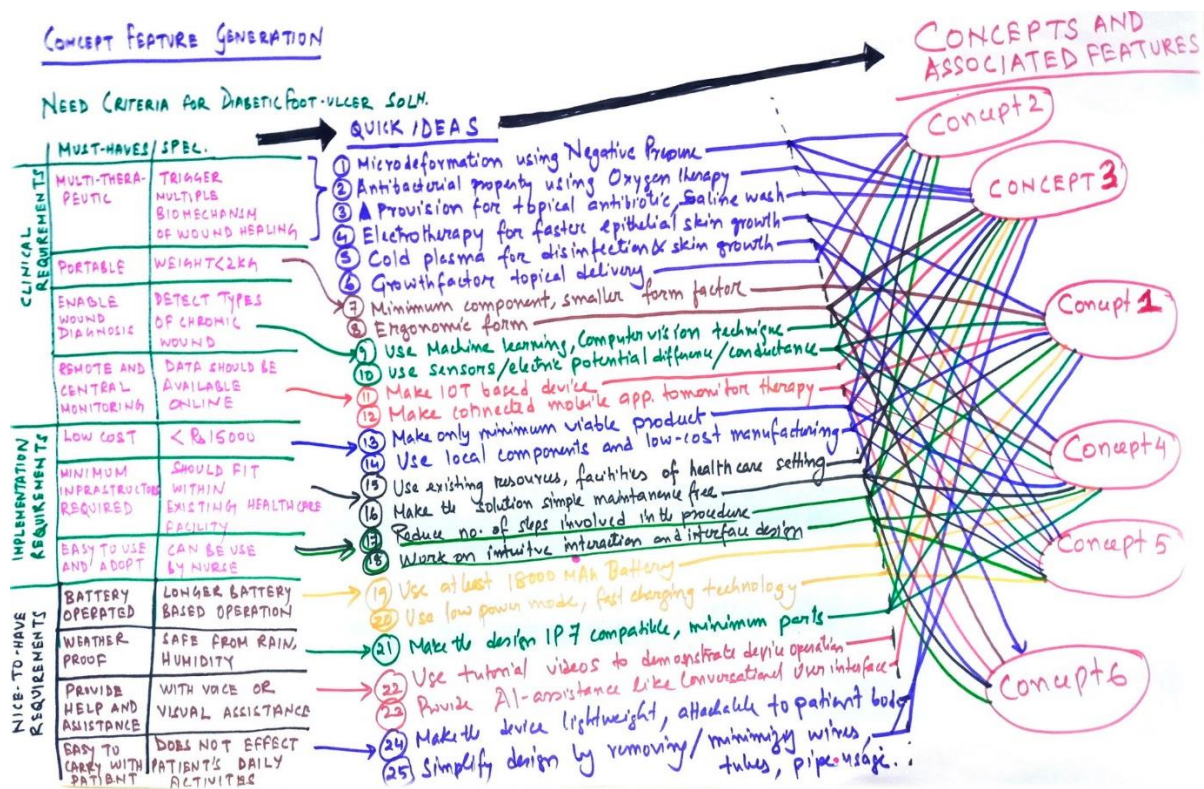 CONCEPT FEATURE GENERATION
CONCEPTS AND
ASSOCIATED FEATURES
NEED CRITERIA FOR DIABETIC FOOT-ULCER SOLN.
MUST-HAVES/SPEC.
QUICK IDEAS
CLINICAL
REQUIREMENTS
MULTI-THERA-
PEUTIC
TRIGGER
MULTIPLE
BIOMECHANISM
OF WOUND HEALING
PORTABLE
WEIGHT<2KG
ENABLE
WOUND
DIAGNOSIS
DETECT TYPES
OF CHRONIC
WOUND
REMOTE AND
CENTRAL
MONITORING
DATA SHOULD BE
AVAILABLE
ONLINE
IMPLEMENTATION
REQUIREMENTS
LOW COST
< Rs 15000
MINIMUM
INFRASTRUCTURE
REQUIRED
SHOULD FIT
WITHIN
EXISTING HEALTHCARE
FACILITY
EASY TO USE
AND ADOPT
CAN BE USE
BY NURSE
NICE-TO-HAVE
REQUIREMENTS
BATTERY
OPERATED
LONGER BATTERY
BASED OPERATION
WEATHER
PROOF
SAFE FROM RAIN,
HUMIDITY
PROVIDE
HELP AND
ASSISTANCE
WITH VOICE OR
VISUAL ASSISTANCE
EASY TO
CARRY WITH
PATIENT
DOES NOT EFFECT
PATIENT'S DAILY
ACTIVITES
1 Microdeformation using Negative Pressure
2 Antibacterial property using Oxygen therapy
3 A Provision for topical antibiotic, Saline wash
4 Electrotherapy for faster epithelial skin growth
5 Cold plasma for disinfection & skin growth
6 Growth factor topical delivery
7 Minimum component, smaller form factor
8 Ergonomic form
9 Use Machine learning, Computer vision technique
10 Use sensors/electric potential difference/conductance
11 Make IOT based device
12 Make connected mobile app. to monitor therapy
13 Make only minimum viable product
14 Use local components and low-cost manufacturing
15 Use existing resources, facilities of health care setting
16 Make the solution simple maintanence free
17 Reduce no. of steps involved in the procedure
18 Work on intuitve interaction and interface design
19 Use atleast 18000 MAh Battery
20 Use low power mode, fast charging technology
21 Make the design IP7 compatible, minimum parts
22 Use tutorial videos to demonstrate device operation
23 Provide AI-assistance like Conversational User interface
24 Make the device lightweight, attachable to patient body
25 Simplify design by removing/minimizing wires,
tubes, pipe usage..
Concept 2
CONCEPT 3
Concept 1
Concept 4
Concept 5
Concept 6